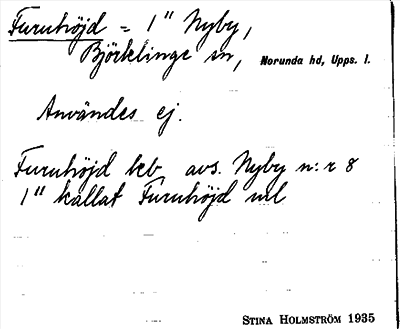 Furuhöjd = 1" Nyby,
Björklinge sn, Norunda hd, Upps. l.
Användes ej.
Furuhöjd leb. avs. Nyby n:r 8
1" kallat Furuhöjd
STINA HOLMSTRÖM 1935